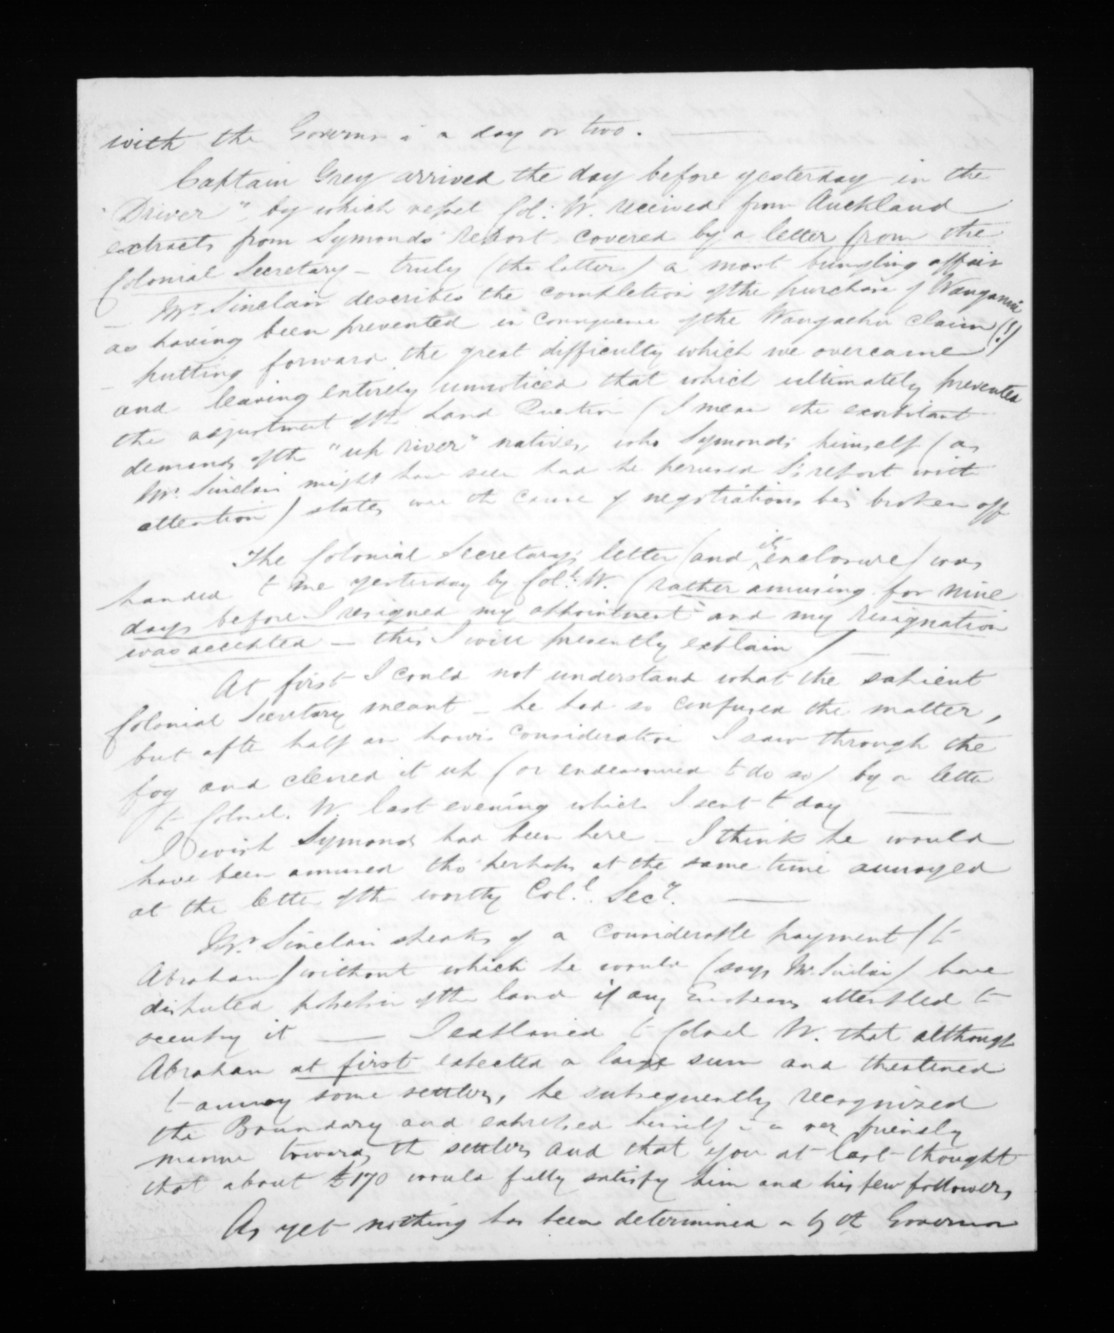 with the Governor in a day or two. —
Captain Grey arrived the day before yesterday in the
"Driver" by which vessel Col: W. received from Auckland
extracts from Symonds' report covered by a letter from the
Colonial Secretary – truly (the latter) a most bungling affair
– Mr. Sinclair describes the completion of the purchase of Wanganui
as having been prevented in consequence of the Wangaehu claim (!)
– putting forward the great difficulty which we overcame
and leaving entirely unnoticed that which ultimately prevented
the adjustment of the Land Question (I mean the exorbitant
demands of the "up river" natives, who Symonds himself (as
Mr. Sinclair might have seen had he perused S's report with
attention) states were the cause of negotiations being broken off
The Colonial Secretary's letter (and its enclosure) was
handed to me yesterday by Col: W. (rather amusing for nine
days before I resigned my appointment and my resignation
was accepted – this I will presently explain) —
At first I could not understand what the sapient
Colonial Secretary meant – he had so confused the matter,
but after half an hours consideration I saw through the
fog and cleared it up (or endeavoured to do so) by a letter
to Colonel. W. last evening which I sent to day —
I wish Symonds had been here – I think he would
have been amused tho' perhaps at the same time annoyed
at the letter of the worthy Col.l Secy. —
Mr Sinclair speaks of a considerable payment (to
Abraham) without which he would (says Mr. Sinclair) have
disputed possession of the land if any Europeans attempted to
occupy it — I explained to Colonel W. that although
Abraham at first expected a large sum and threatened
to annoy some settlers, he subsequently recognized
the Boundary and expressed himself in a very friendly
manner towards the settlers and that you at last thought
that about £170 would fully satisfy him and his few followers
As yet nothing has been determined on by the Governor